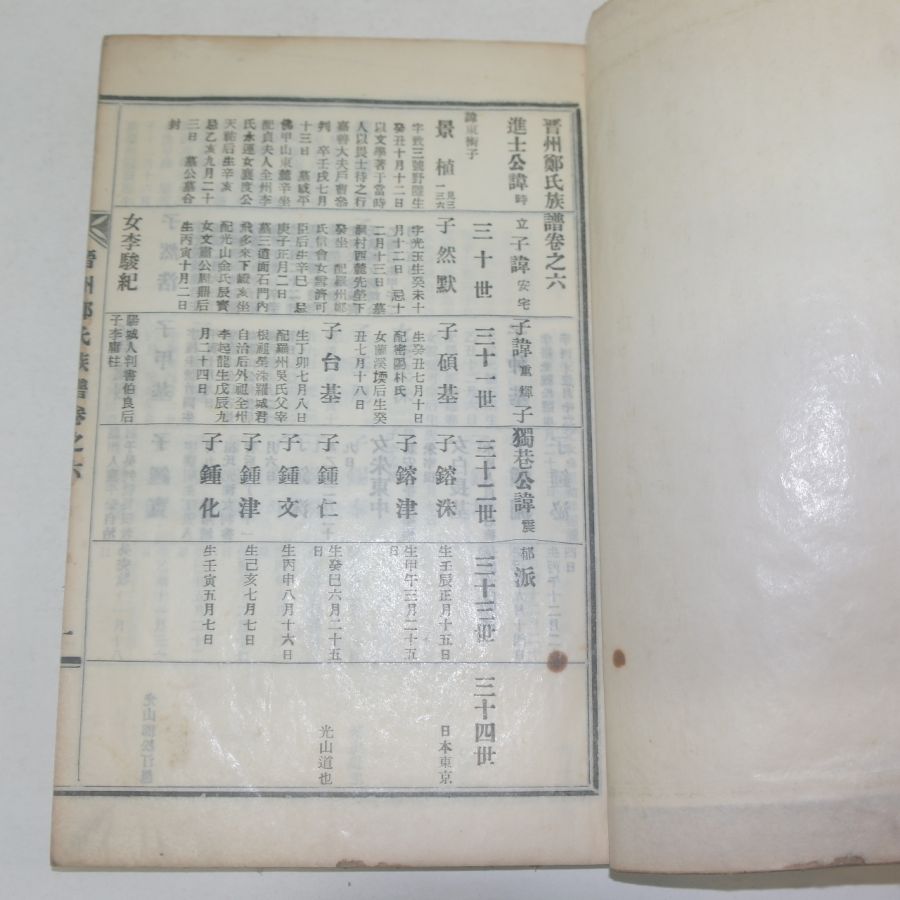 晋州鄭氏族譜卷之六
進士公諱時立子諱安宅子諱重輝子獨巷公諱震郁派
三十世
三十一世
三十二世
三十三世
三十四世
諱東衡子
景植
見三
一三六
字致三號野隱生
癸丑十月十二日
以文學著于當時
人以畏士待之行
嘉善大夫戶曹參
判 卒壬戌七月
十三日 墓咸平
佛甲山東麓辛坐
配貞夫人全州李
氏永運女襄度公
天祐后生辛亥
忌乙亥九月二十
三日 墓公墓合
封
子然默
字光玉生癸未十
月十二日 忌十
二月十三日 墓
桐村西麓先塋下
癸坐 配羅州鄭
氏信會女雪濟可
臣后生辛巳 忌
庚子正月二日
墓三道面石門內
飛多來下麓亥坐
配光山金氏辰寶
女文肅公周鼎后
生丙寅十月二日
女李駿紀
陽城人判書伯良后
子李庸柱
子碩基
生癸丑七月十日
配密陽朴氏
女蘭溪堧后生癸
丑七月十八日
子台基
生丁卯七月八日
配羅州吳氏父宰
根祖榮洙羅城君
自治后外祖全州
李起龍生戊辰九
月二十四日
子鎔洙
生壬辰正月十五日
日本東京
子鎔津
生甲午三月二十五
日
子鍾仁
生癸巳六月二十五
日
光山道也
子鍾文
生丙申八月十六日
子鍾津
生己亥七月七日
子鍾化
生壬寅五月七日
晋州鄭氏族譜卷之六
一